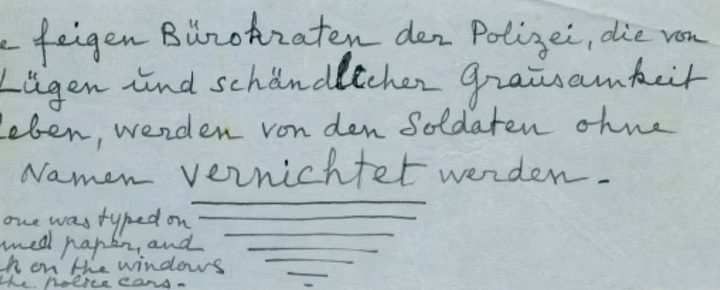 e feigen Bürokraten der Polizei, die von
Lügen und schändlicher Grausamkeit
leben, werden von den Soldaten ohne
Namen vernichtet werden.-
one was typed on
med paper, and
k on the windows
the police cars.-